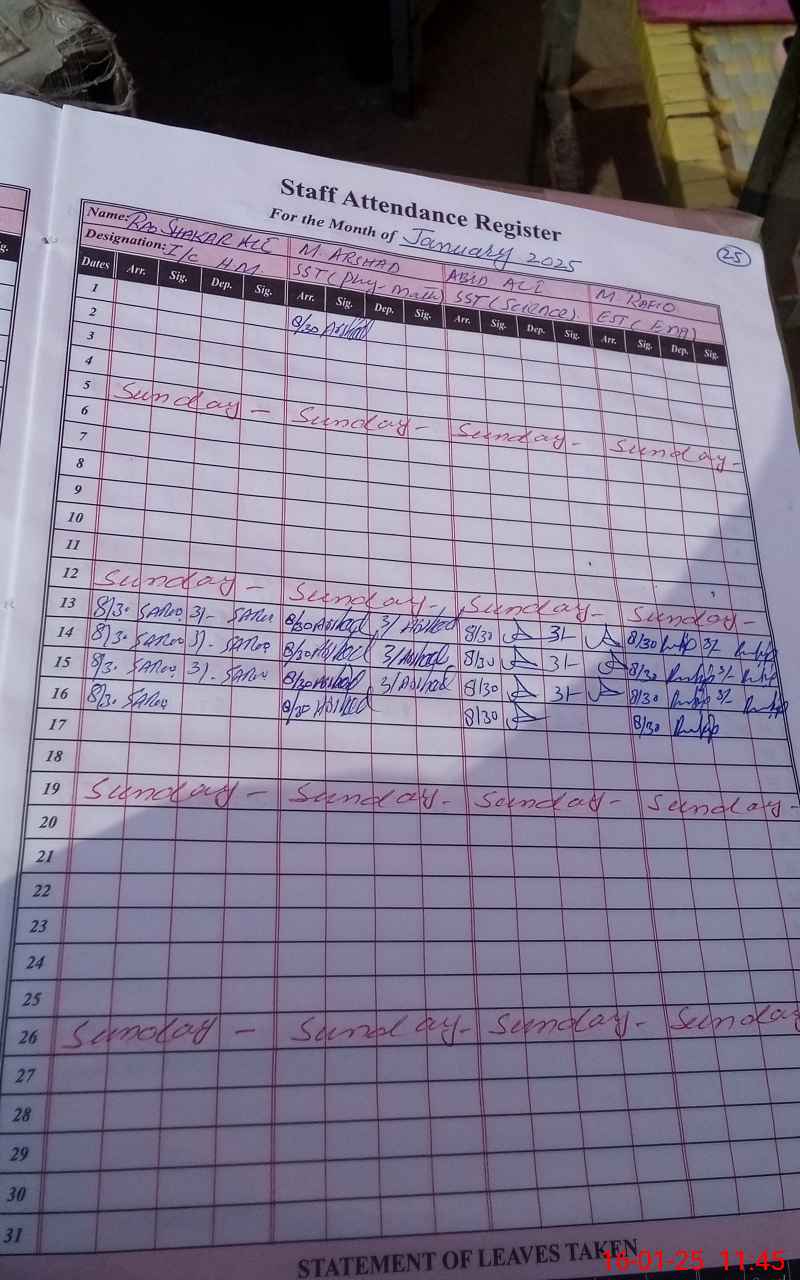 Staff Attendance Register
For the Month of January 2025
25
Name: RAO SHAKAR ALI M. ARSHAD ABID ALI M. RAFIQ
Designation: I/C H.M SST (Phy-Math) SST (Science). EST (
Dates Arr. Sig. Dep. Sig. Arr. Sig. Dep. Sig. Arr. Sig. Dep. Sig. Arr. Sig. Dep. Sig.
1
2 8/30 Arshad
3
4
5 Sunday - Sunday - Sunday - Sunday -
6
7
8
9
10
11
12 Sunday - Sunday - Sunday - Sunday -
13 8/30 3/- 8/30 Arshad 3/ Arshad 8/30 3/- 8/30 3/-
14 8/30 3/- 8/30 Arshad 3/ Arshad 8/30 3/- 8/30 3/-
15 8/30 3/- 8/30 Arshad 3/ Arshad 8/30 3/- 8/30 3/-
16 8/30 8/30 Arshad 8/30 8/30
17
18
19 Sunday - Sunday - Sunday - Sunday -
20
21
22
23
24
25
26 Sunday - Sunday - Sunday - Sunday
27
28
29
30
31
STATEMENT OF LEAVES TAKEN
16-01-25 11:45